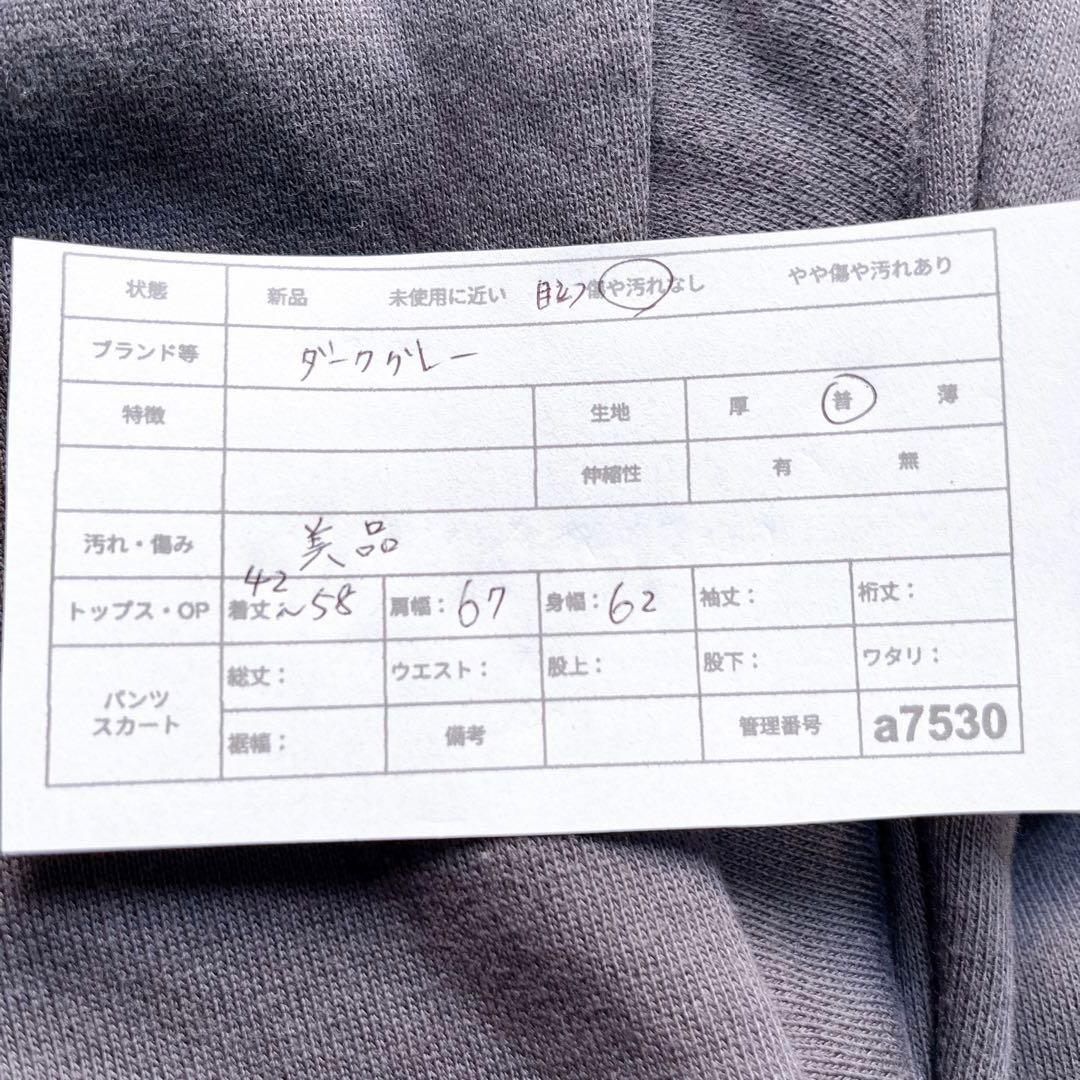 状態 新品 未使用に近い 目立つ傷や汚れなし やや傷や汚れあり
ブランド等 ダークグレー
特徴 生地 厚 普 薄
伸縮性 有 無
汚れ・傷み 美品
トップス・OP 着丈 42~58 肩幅:67 身幅:62 袖丈: 裄丈:
パンツ
スカート
総丈: ウエスト: 股上: 股下: ワタリ:
裾幅: 備考 管理番号 a7530